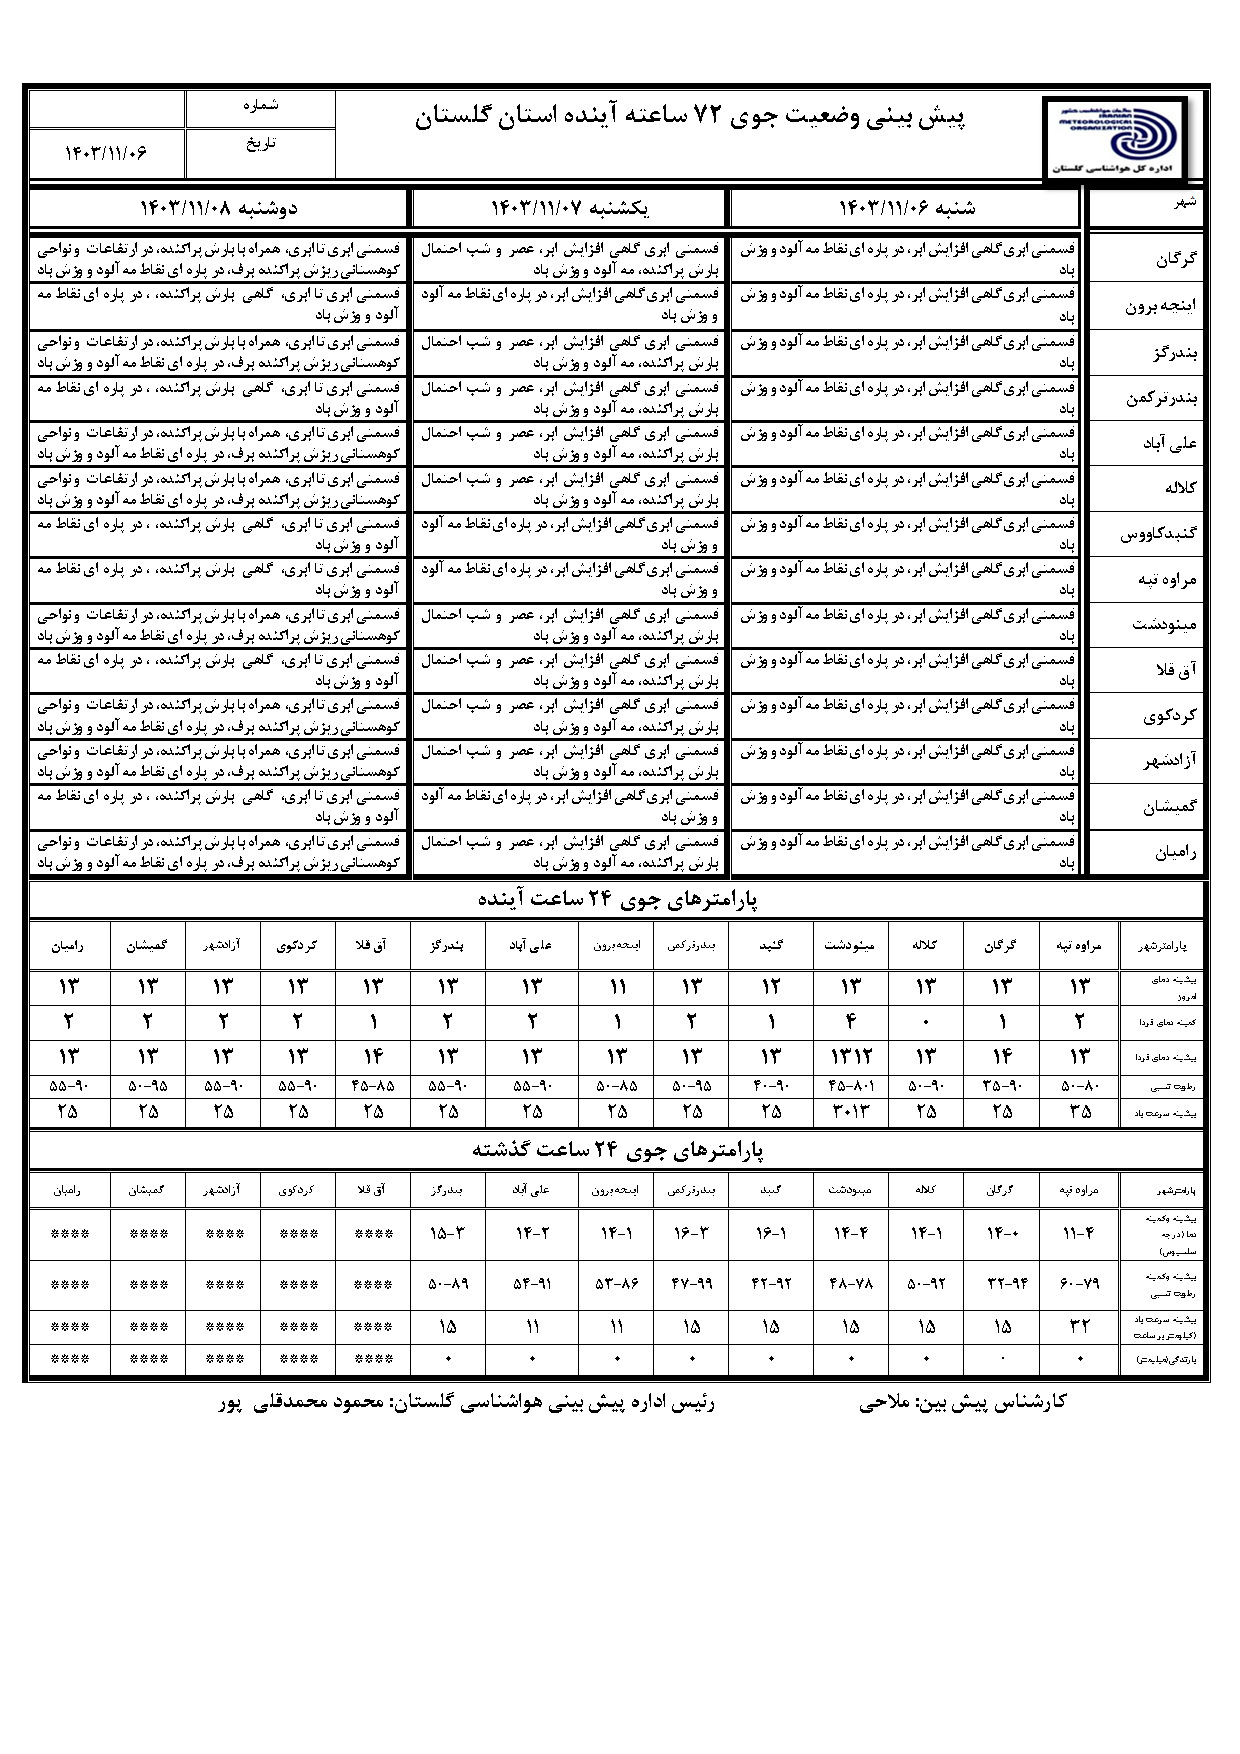 سازمان هواشناسی کشور
IRANIAN
METEOROLOGICAL
ORGANIZATION
اداره کل هواشناسی گلستان
پیش بینی وضعیت جوی ۷۲ ساعته آینده استان گلستان
شماره
تاریخ ۱۴۰۳/۱۱/۰۶
شهر شنبه ۱۴۰۳/۱۱/۰۶ یکشنبه ۱۴۰۳/۱۱/۰۷ دوشنبه ۱۴۰۳/۱۱/۰۸
گرگان قسمتی ابری گاهی افزایش ابر، در پاره ای نقاط مه آلود و وزش قسمتی ابری گاهی افزایش ابر، عصر و شب احتمال قسمتی ابری تا ابری، همراه با بارش پراکنده، در ارتفاعات و نواحی
باد بارش پراکنده، مه آلود و وزش باد کوهستانی ریزش پراکنده برف، در پاره ای نقاط مه آلود و وزش باد
اینچه برون قسمتی ابری گاهی افزایش ابر، در پاره ای نقاط مه آلود و وزش قسمتی ابری گاهی افزایش ابر، در پاره ای نقاط مه آلود قسمتی ابری تا ابری، گاهی بارش پراکنده، ، در پاره ای نقاط مه
باد و وزش باد آلود و وزش باد
بندرگز قسمتی ابری گاهی افزایش ابر، در پاره ای نقاط مه آلود و وزش قسمتی ابری گاهی افزایش ابر، عصر و شب احتمال قسمتی ابری تا ابری، همراه با بارش پراکنده، در ارتفاعات و نواحی
باد بارش پراکنده، مه آلود و وزش باد کوهستانی ریزش پراکنده برف، در پاره ای نقاط مه آلود و وزش باد
بندرترکمن قسمتی ابری گاهی افزایش ابر، در پاره ای نقاط مه آلود و وزش قسمتی ابری گاهی افزایش ابر، عصر و شب احتمال قسمتی ابری تا ابری، گاهی بارش پراکنده، ، در پاره ای نقاط مه
باد بارش پراکنده، مه آلود و وزش باد آلود و وزش باد
علی آباد قسمتی ابری گاهی افزایش ابر، در پاره ای نقاط مه آلود و وزش قسمتی ابری گاهی افزایش ابر، عصر و شب احتمال قسمتی ابری تا ابری، همراه با بارش پراکنده، در ارتفاعات و نواحی
باد بارش پراکنده، مه آلود و وزش باد کوهستانی ریزش پراکنده برف، در پاره ای نقاط مه آلود و وزش باد
کلاله قسمتی ابری گاهی افزایش ابر، در پاره ای نقاط مه آلود و وزش قسمتی ابری گاهی افزایش ابر، عصر و شب احتمال قسمتی ابری تا ابری، همراه با بارش پراکنده، در ارتفاعات و نواحی
باد بارش پراکنده، مه آلود و وزش باد کوهستانی ریزش پراکنده برف، در پاره ای نقاط مه آلود و وزش باد
گنبدکاووس قسمتی ابری گاهی افزایش ابر، در پاره ای نقاط مه آلود و وزش قسمتی ابری گاهی افزایش ابر، در پاره ای نقاط مه آلود قسمتی ابری تا ابری، گاهی بارش پراکنده، ، در پاره ای نقاط مه
باد و وزش باد آلود و وزش باد
مراوه تپه قسمتی ابری گاهی افزایش ابر، در پاره ای نقاط مه آلود و وزش قسمتی ابری گاهی افزایش ابر، در پاره ای نقاط مه آلود قسمتی ابری تا ابری، گاهی بارش پراکنده، ، در پاره ای نقاط مه
باد و وزش باد آلود و وزش باد
مینودشت قسمتی ابری گاهی افزایش ابر، در پاره ای نقاط مه آلود و وزش قسمتی ابری گاهی افزایش ابر، عصر و شب احتمال قسمتی ابری تا ابری، همراه با بارش پراکنده، در ارتفاعات و نواحی
باد بارش پراکنده، مه آلود و وزش باد کوهستانی ریزش پراکنده برف، در پاره ای نقاط مه آلود و وزش باد
آق قلا قسمتی ابری گاهی افزایش ابر، در پاره ای نقاط مه آلود و وزش قسمتی ابری گاهی افزایش ابر، عصر و شب احتمال قسمتی ابری تا ابری، گاهی بارش پراکنده، ، در پاره ای نقاط مه
باد بارش پراکنده، مه آلود و وزش باد آلود و وزش باد
کردکوی قسمتی ابری گاهی افزایش ابر، در پاره ای نقاط مه آلود و وزش قسمتی ابری گاهی افزایش ابر، عصر و شب احتمال قسمتی ابری تا ابری، همراه با بارش پراکنده، در ارتفاعات و نواحی
باد بارش پراکنده، مه آلود و وزش باد کوهستانی ریزش پراکنده برف، در پاره ای نقاط مه آلود و وزش باد
آزادشهر قسمتی ابری گاهی افزایش ابر، در پاره ای نقاط مه آلود و وزش قسمتی ابری گاهی افزایش ابر، عصر و شب احتمال قسمتی ابری تا ابری، همراه با بارش پراکنده، در ارتفاعات و نواحی
باد بارش پراکنده، مه آلود و وزش باد کوهستانی ریزش پراکنده برف، در پاره ای نقاط مه آلود و وزش باد
گمیشان قسمتی ابری گاهی افزایش ابر، در پاره ای نقاط مه آلود و وزش قسمتی ابری گاهی افزایش ابر، در پاره ای نقاط مه آلود قسمتی ابری تا ابری، گاهی بارش پراکنده، ، در پاره ای نقاط مه
باد و وزش باد آلود و وزش باد
رامیان قسمتی ابری گاهی افزایش ابر، در پاره ای نقاط مه آلود و وزش قسمتی ابری گاهی افزایش ابر، عصر و شب احتمال قسمتی ابری تا ابری، همراه با بارش پراکنده، در ارتفاعات و نواحی
باد بارش پراکنده، مه آلود و وزش باد کوهستانی ریزش پراکنده برف، در پاره ای نقاط مه آلود و وزش باد
پارامترهای جوی ۲۴ ساعت آینده
پارامترشهر مراوه تپه گرگان کلاله مینودشت گنبد بندرترکمن اینچه برون علی آباد بندرگز آق قلا کردکوی آزادشهر گمیشان رامیان
بیشینه دمای امروز ۱۳ ۱۳ ۱۳ ۱۳ ۱۲ ۱۳ ۱۱ ۱۳ ۱۳ ۱۳ ۱۳ ۱۳ ۱۳ ۱۳
کمینه دمای فردا ۲ ۱ ۰ ۴ ۱ ۲ ۱ ۲ ۲ ۱ ۲ ۲ ۲ ۲
بیشینه دمای فردا ۱۳ ۱۴ ۱۳ ۱۳۱۲ ۱۳ ۱۳ ۱۳ ۱۳ ۱۳ ۱۴ ۱۳ ۱۳ ۱۳ ۱۳
رطوبت نسبی ۵۰-۸۰ ۳۵-۹۰ ۵۰-۹۰ ۴۵-۸۰۱ ۴۰-۹۰ ۵۰-۹۵ ۵۰-۸۵ ۵۵-۹۰ ۵۵-۹۰ ۴۵-۸۵ ۵۵-۹۰ ۵۵-۹۰ ۵۰-۹۵ ۵۵-۹۰
بیشینه سرعت باد ۳۵ ۲۵ ۲۵ ۳۰۱۳ ۲۵ ۲۵ ۲۵ ۲۵ ۲۵ ۲۵ ۲۵ ۲۵ ۲۵ ۲۵
پارامترهای جوی ۲۴ ساعت گذشته
پارامترشهر مراوه تپه گرگان کلاله مینودشت گنبد بندرترکمن اینچه برون علی آباد بندرگز آق قلا کردکوی آزادشهر گمیشان رامیان
بیشینه وکمینه دما (درجه سلسیوس) ۱۱-۴ ۱۴-۰ ۱۴-۱ ۱۴-۴ ۱۶-۱ ۱۶-۳ ۱۴-۱ ۱۴-۲ ۱۵-۳ **** **** **** **** ****
بیشینه وکمینه رطوبت نسبی ۶۰-۷۹ ۳۲-۹۴ ۵۰-۹۲ ۴۸-۷۸ ۴۲-۹۲ ۴۷-۹۹ ۵۳-۸۶ ۵۴-۹۱ ۵۰-۸۹ **** **** **** **** ****
بیشینه سرعت باد (کیلومتر بر ساعت) ۳۲ ۱۵ ۱۵ ۱۵ ۱۵ ۱۵ ۱۱ ۱۱ ۱۵ **** **** **** **** ****
بارندگی(میلیمتر) ۰ ۰ ۰ ۰ ۰ ۰ ۰ ۰ ۰ **** **** **** **** ****
کارشناس پیش بین: ملاحی رئیس اداره پیش بینی هواشناسی گلستان: محمود محمدقلی پور